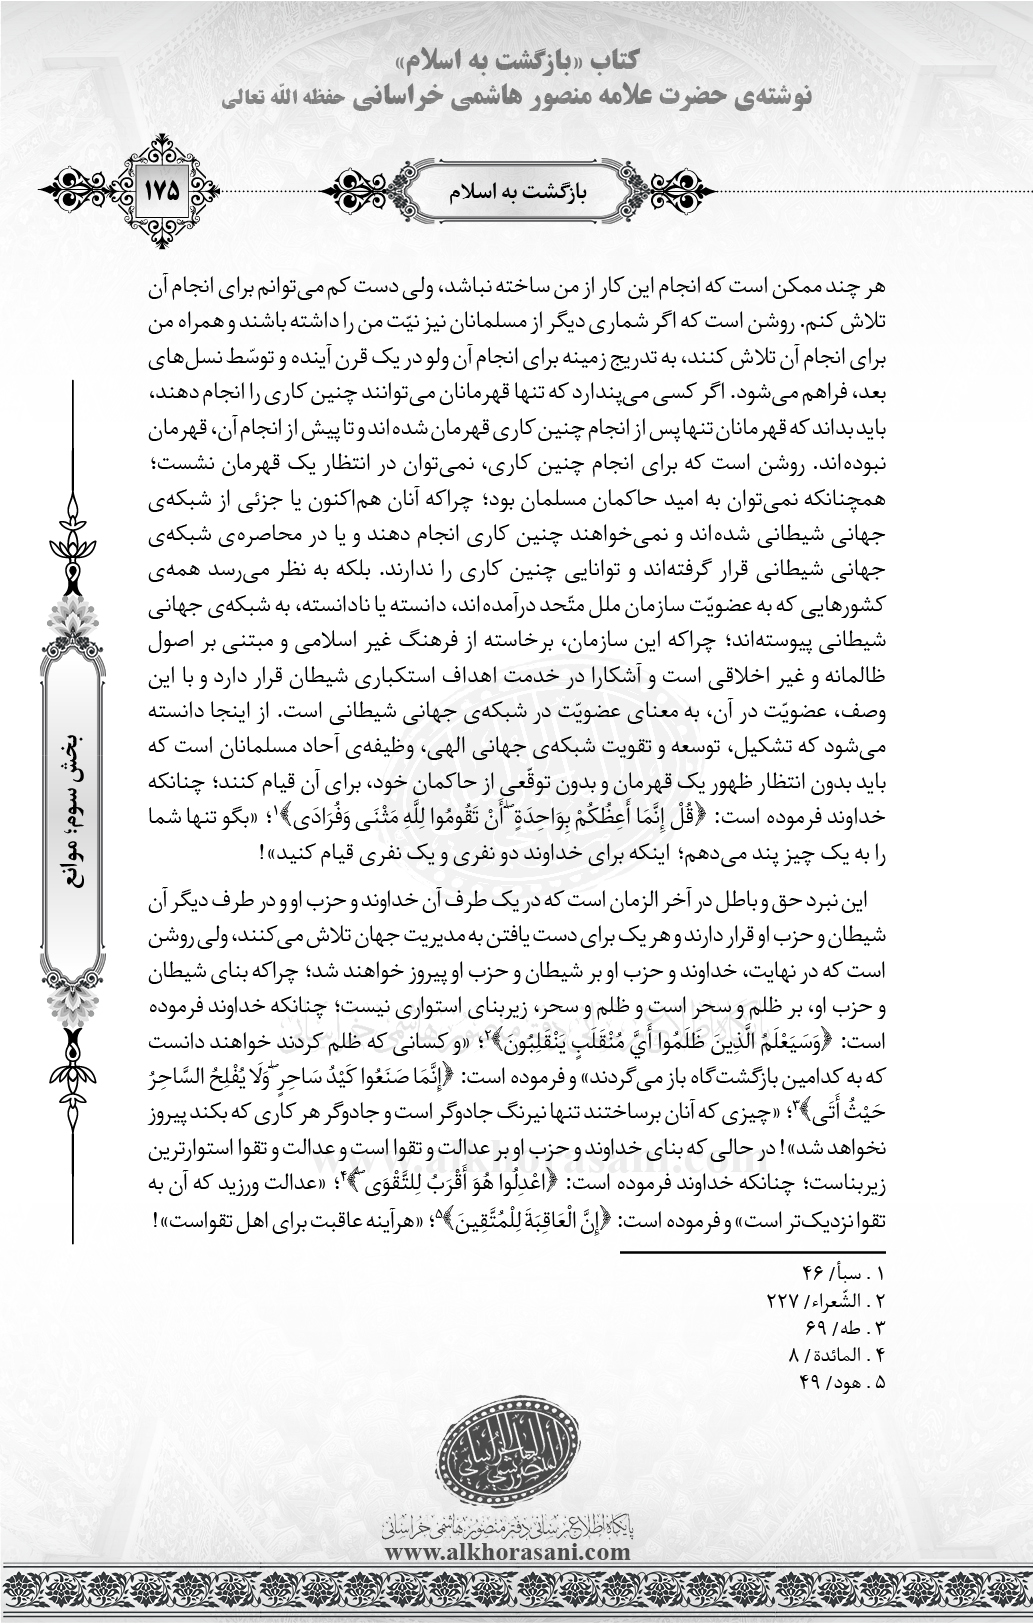 کتاب «بازگشت به اسلام»
نوشته‌ی حضرت علامه منصور هاشمی خراسانی حفظه الله تعالی
بازگشت به اسلام
۱۷۵
هر چند ممکن است که انجام این کار از من ساخته نباشد، ولی دست کم می‌توانم برای انجام آن
تلاش کنم. روشن است که اگر شماری دیگر از مسلمانان نیز نیّت من را داشته باشند و همراه من
برای انجام آن تلاش کنند، به تدریج زمینه برای انجام آن ولو در یک قرن آینده و توسّط نسل‌های
بعد، فراهم می‌شود. اگر کسی می‌پندارد که تنها قهرمانان می‌توانند چنین کاری را انجام دهند،
باید بداند که قهرمانان تنها پس از انجام چنین کاری قهرمان شده‌اند و تا پیش از انجام آن، قهرمان
نبوده‌اند. روشن است که برای انجام چنین کاری، نمی‌توان در انتظار یک قهرمان نشست؛
همچنانکه نمی‌توان به امید حاکمان مسلمان بود؛ چراکه آنان هم‌اکنون یا جزئی از شبکه‌ی
جهانی شیطانی شده‌اند و نمی‌خواهند چنین کاری انجام دهند و یا در محاصره‌ی شبکه‌ی
جهانی شیطانی قرار گرفته‌اند و توانایی چنین کاری را ندارند. بلکه به نظر می‌رسد همه‌ی
کشورهایی که به عضویّت سازمان ملل متّحد درآمده‌اند، دانسته یا نادانسته، به شبکه‌ی جهانی
شیطانی پیوسته‌اند؛ چراکه این سازمان، برخاسته از فرهنگ غیر اسلامی و مبتنی بر اصول
ظالمانه و غیر اخلاقی است و آشکارا در خدمت اهداف استکباری شیطان قرار دارد و با این
وصف، عضویّت در آن، به معنای عضویّت در شبکه‌ی جهانی شیطانی است. از اینجا دانسته
می‌شود که تشکیل، توسعه و تقویت شبکه‌ی جهانی الهی، وظیفه‌ی آحاد مسلمانان است که
باید بدون انتظار ظهور یک قهرمان و بدون توقّعی از حاکمان خود، برای آن قیام کنند؛ چنانکه
خداوند فرموده است: ﴿قُلْ إِنَّمَا أَعِظُكُمْ بِوَاحِدَةٍ ۖ أَنْ تَقُومُوا لِلَّهِ مَثْنَى وَفُرَادَى﴾۱؛ «بگو تنها شما
را به یک چیز پند می‌دهم؛ اینکه برای خداوند دو نفری و یک نفری قیام کنید»!
این نبرد حق و باطل در آخر الزمان است که در یک طرف آن خداوند و حزب او و در طرف دیگر آن
شیطان و حزب او قرار دارند و هر یک برای دست یافتن به مدیریت جهان تلاش می‌کنند، ولی روشن
است که در نهایت، خداوند و حزب او بر شیطان و حزب او پیروز خواهند شد؛ چراکه بنای شیطان
و حزب او، بر ظلم و سحر است و ظلم و سحر، زیربنای استواری نیست؛ چنانکه خداوند فرموده
است: ﴿وَسَيَعْلَمُ الَّذِينَ ظَلَمُوا أَيَّ مُنْقَلَبٍ يَنْقَلِبُونَ﴾۲؛ «و کسانی که ظلم کردند خواهند دانست
که به کدامین بازگشت‌گاه باز می‌گردند» و فرموده است: ﴿إِنَّمَا صَنَعُوا كَيْدُ سَاحِرٍ ۖ وَلَا يُفْلِحُ السَّاحِرُ
حَيْثُ أَتَى﴾۳؛ «چیزی که آنان برساختند تنها نیرنگ جادوگر است و جادوگر هر کاری که بکند پیروز
نخواهد شد»! در حالی که بنای خداوند و حزب او بر عدالت و تقوا است و عدالت و تقوا استوارترین
زیربناست؛ چنانکه خداوند فرموده است: ﴿اعْدِلُوا هُوَ أَقْرَبُ لِلتَّقْوَى ۖ﴾۴؛ «عدالت ورزید که آن به
تقوا نزدیک‌تر است» و فرموده است: ﴿إِنَّ الْعَاقِبَةَ لِلْمُتَّقِينَ﴾۵؛ «هرآینه عاقبت برای اهل تقواست»!
۱ . سبأ/ ۴۶
۲ . الشّعراء/ ۲۲۷
۳ . طه/ ۶۹
۴ . المائدة/ ۸
۵ . هود/ ۴۹
بخش سوم؛ موانع
پایگاه اطلاع‌رسانی دفتر منصور هاشمی خراسانی
www.alkhorasani.com
پایگاه اطلاع‌رسانی دفتر منصور هاشمی خراسانی
www.alkhorasani.com